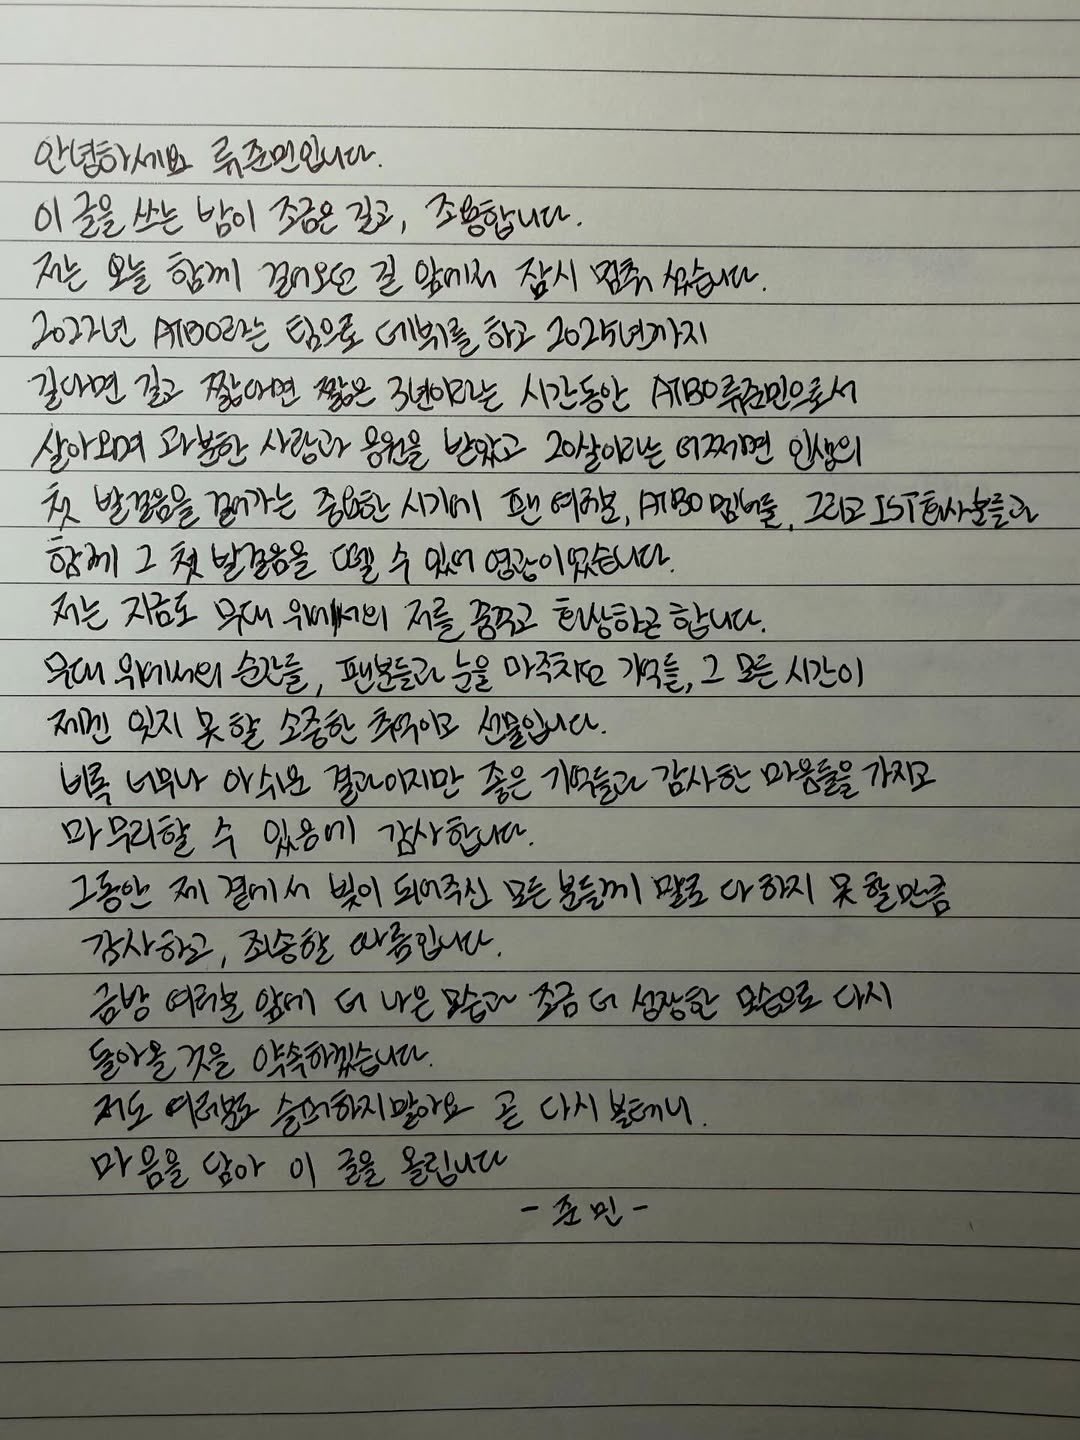 안녕하세요 류준민입니다.
이 글을 쓰는 밤이 조금은 길고, 조용합니다.
저는 오늘 함께 걸어오던 길 앞에서 잠시 멈춰 섰습니다.
2022년 ATBO라는 팀으로 데뷔를 하고 2025년까지
길다면 길고 짧다면 짧은 3년이라는 시간동안 ATBO 류준민으로서
살아오며 과분한 사랑과 응원을 받았고 20살이라는 어쩌면 인생의
첫 발걸음을 걸어가는 중요한 시기에 팬 여러분, ATBO 멤버들, 그리고 IST 회사분들과
함께 그 첫 발걸음을 뗄 수 있어 영광이었습니다.
저는 지금도 무대 위에서의 저를 꿈꾸고 회상하곤 합니다.
무대 위에서의 순간들, 팬분들과 눈을 마주치던 기억들, 그 모든 시간이
제겐 잊지 못할 소중한 추억이고 선물입니다.
비록 너무나 아쉬운 결과이지만 좋은 기억들과 감사한 마음들을 가지고
마무리할 수 있음에 감사합니다.
그동안 제 곁에서 빛이 되어주신 모든 분들께 말로 다 하지 못할만큼
감사하고, 죄송할 따름입니다.
금방 여러분 앞에 더 나은 모습과 조금 더 성장한 모습으로 다시
돌아올 것을 약속하겠습니다.
저도 여러분도 슬퍼하지말아요 곧 다시 볼테니.
마음을 담아 이 글을 올립니다
- 준민 -